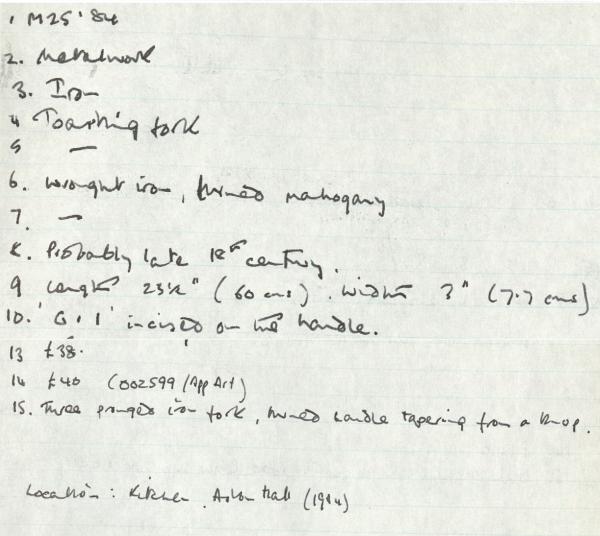 1 M25'84
2. Metalwork
3. Iron
4 Toasting fork
5 —
6. Wrought iron, turned mahogany
7. —
8. Probably late 18th century.
9 Length 23½" (60 cms). Width 3" (7.7 cms)
10. 'G. I' incised on the handle.
13 £38.
14 £40 (002599/App Art)
15. Three pronged iron fork, turned handle tapering from a knop.
Location: Kitchen. Aston Hall (1984)